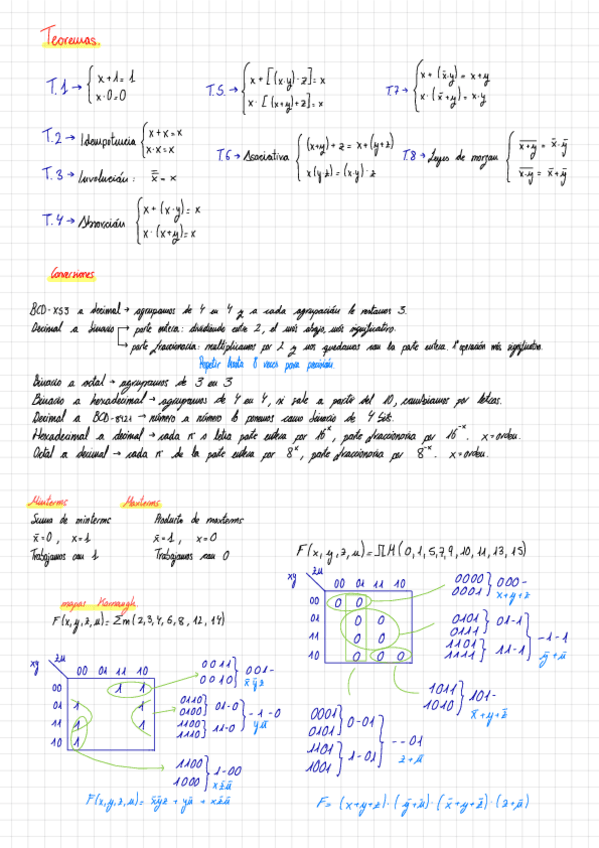 Teoremas.
T.1 → { x + 1 = 1
x · 0 = 0
T.2 → Idempotencia { x + x = x
x · x = x
T.3 → Involución: x̿ = x
T.4 → Absorción { x + (x·y) = x
x · (x+y) = x
T.5. → { x + [(x·y)·z] = x
x · [(x+y)+z] = x
T.6 → Asociativa { (x+y) + z = x + (y+z)
x(y·z) = (x·y)·z
T.7 → { x + (x̄·y) = x + y
x · (x̄+y) = x·y
T.8 → Leyes de morgan { x̅+̅y̅ = x̄·ȳ
x̅·̅y̅ = x̄+ȳ
Conversiones
BCD-XS3 a decimal → agrupamos de 4 en 4 y a cada agrupación le restamos 3.
Decimal a binario → parte entera: dividiendo entre 2, el más abajo, más significativo.
→ parte fraccionaria: multiplicamos por 2 y nos quedamos con la parte entera. 1ª operación más significativa.
Repetir hasta 8 veces para precisión
Binario a octal → agrupamos de 3 en 3
Binario a hexadecimal → agrupamos de 4 en 4, si sale a partir del 10, cambiamos por letras.
Decimal a BCD-8421 → número a número lo ponemos como binario de 4 bits.
Hexadecimal a decimal → cada nº o letra parte entera por 16^x, parte fraccionaria por 16^-x. x=orden.
Octal a decimal → cada nº de la parte entera por 8^x, parte fraccionaria por 8^-x. x=orden.
Minterms Maxterms
Suma de minterms Producto de maxterms
x̄=0, x=1 x̄=1, x=0
Trabajamos con 1 Trabajamos con 0
mapas Karnaugh.
F(x,y,z,u) = Σm(2,3,4,6,8,12,14)
xy zu
00 01 11 10
00 1 1
01 1 1
11 1 1
10 1
0011
0010 } 001-
x̄ȳz
0110
0100 } 01-0
1100
1110 } 11-0
} -1-0
yū
1100
1000 } 1-00
xz̄ū
F(x,y,z,u) = x̄ȳz + yū + xz̄ū
F(x,y,z,u) = ΠM(0,1,5,7,9,10,11,13,15)
xy zu
00 01 11 10
00 0 0
01 0 0
11 0 0
10 0 0 0
0000
0001 } 000-
x+y+z
0101
0111 } 01-1
1101
1111 } 11-1
} -1-1
ȳ+ū
1011
1010 } 101-
x̄+y+z̄
0001
0101 } 0-01
1101
1001 } 1-01
} --01
z+ū
F = (x+y+z)·(ȳ+ū)·(x̄+y+z̄)·(z+ū)